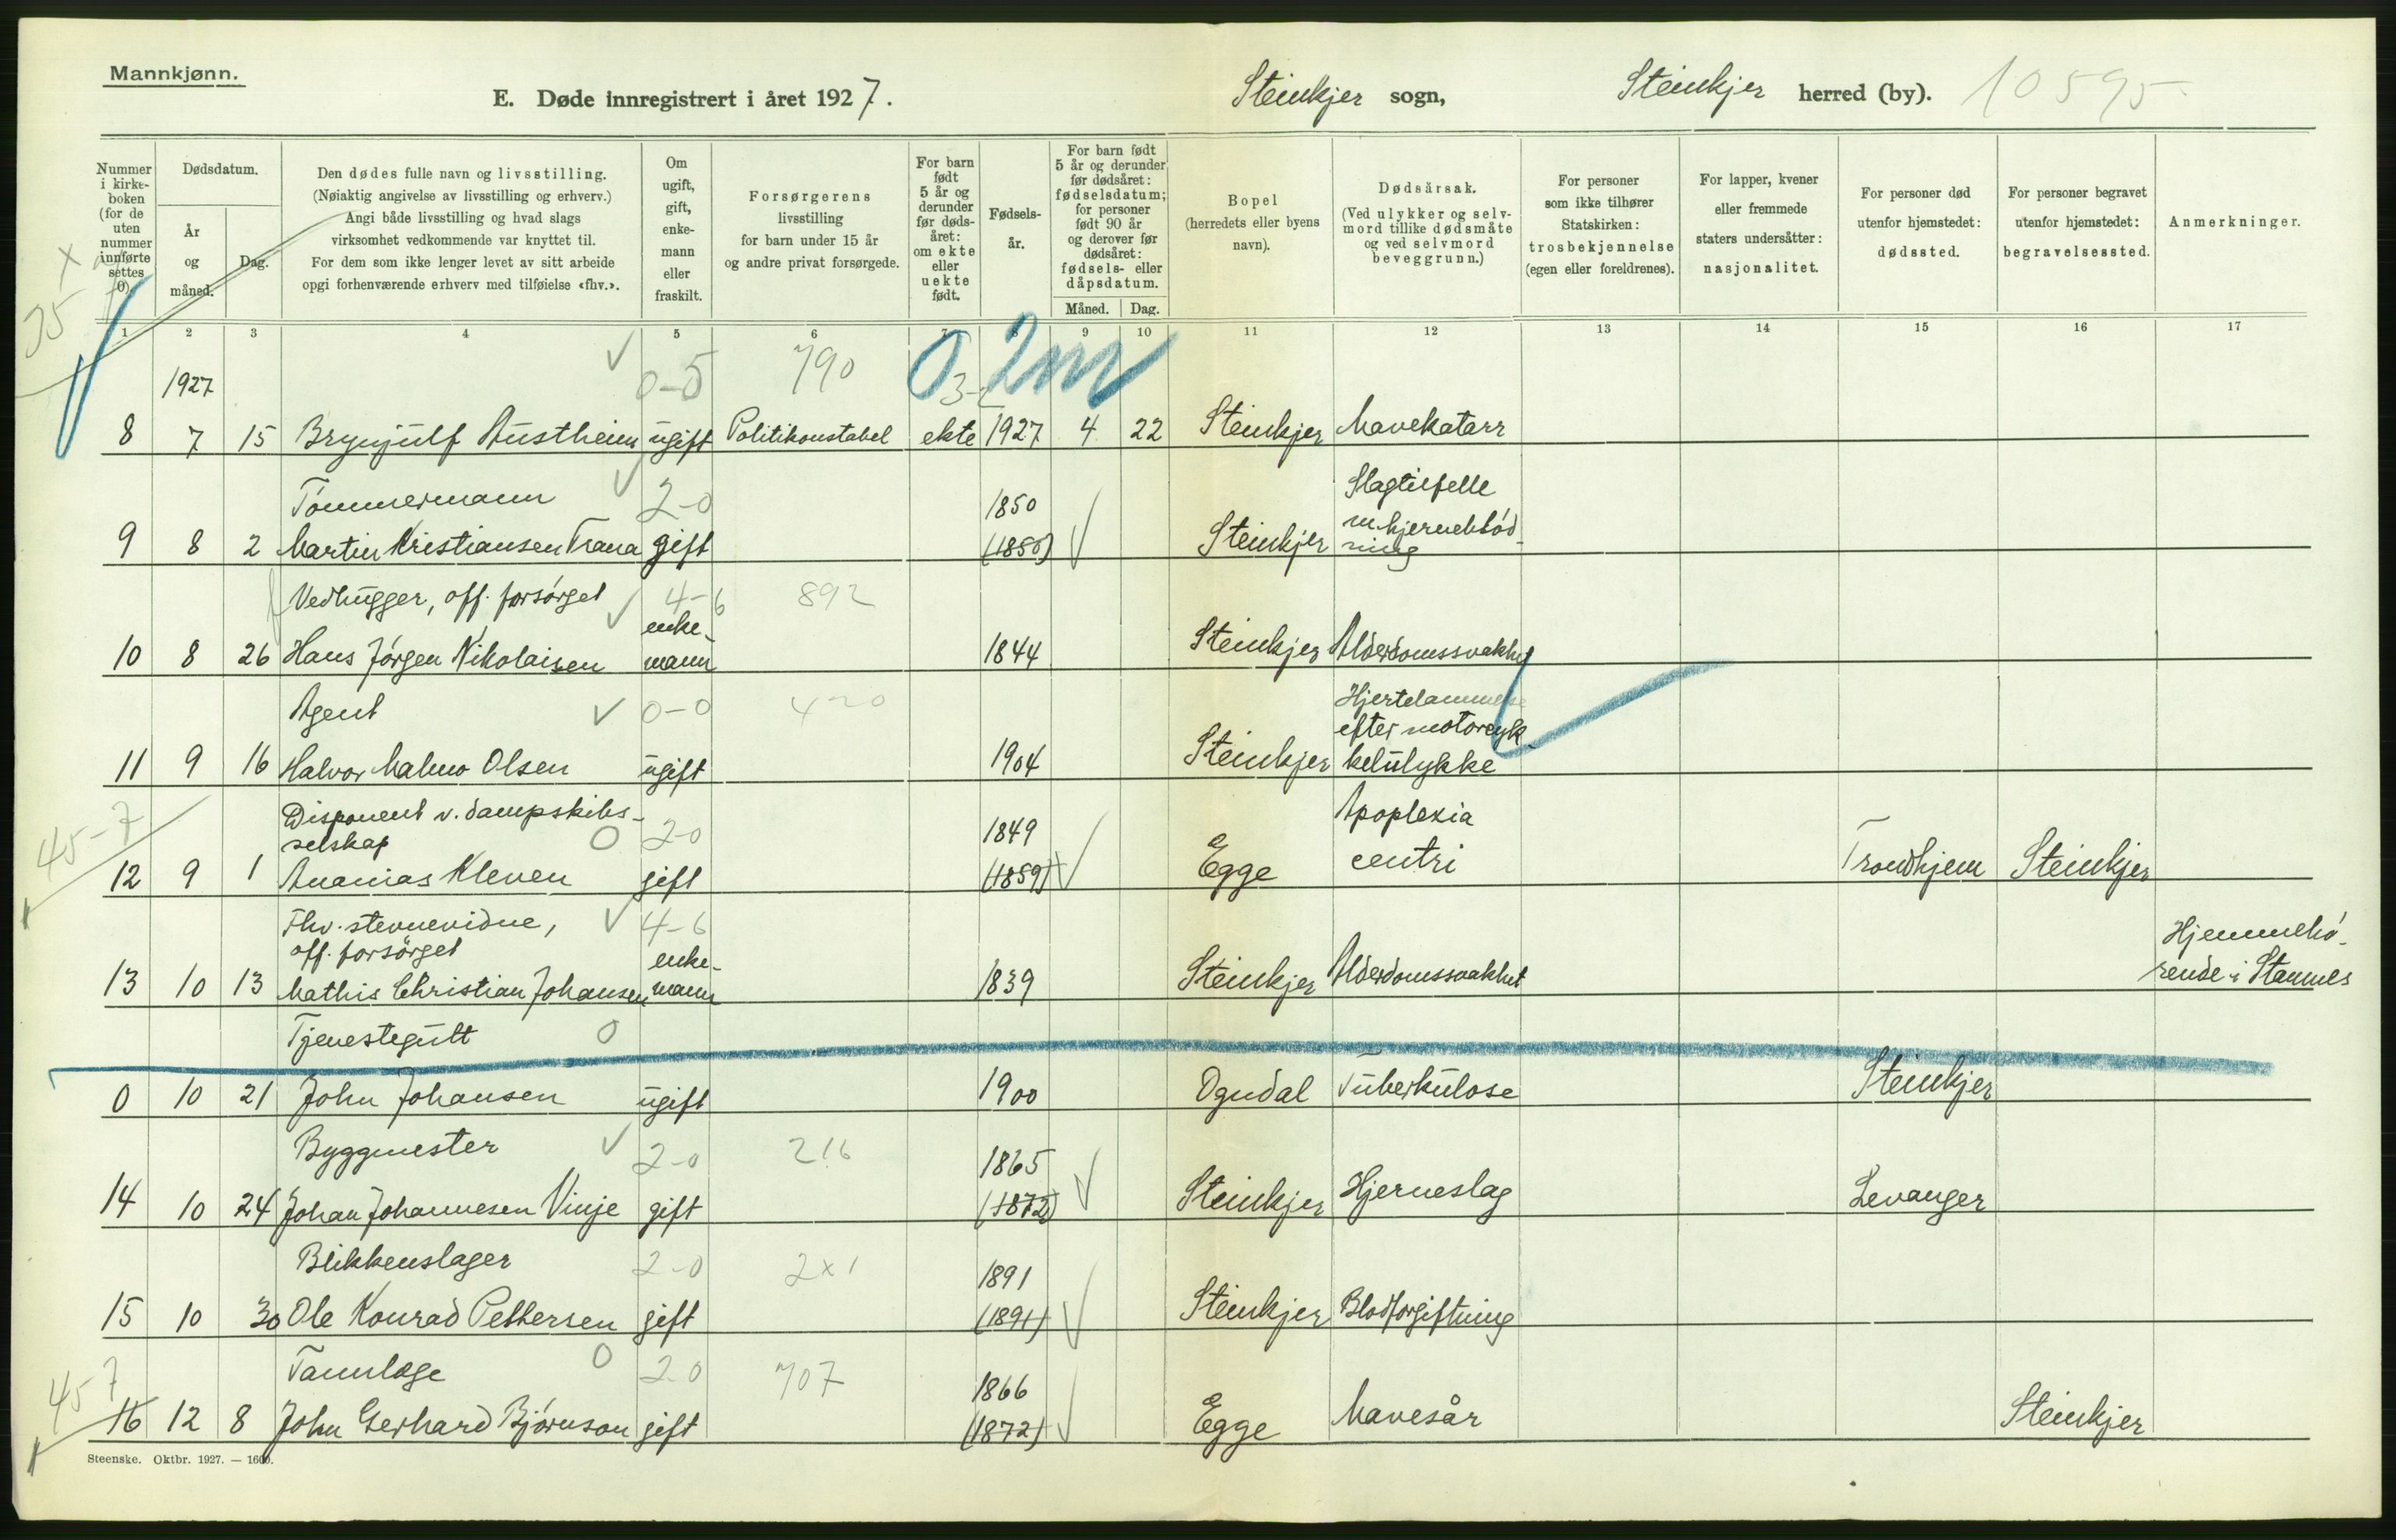 Mannkjønn.
E. Døde innregistrert i året 1927. Steinkjer sogn, Steinkjer herred (by). 10595
Nummer i kirkeboken (for de uten nummer innførte settes 0).
Dødsdatum.
År og måned.
Dag.
Den dødes fulle navn og livsstilling.
(Nøiaktig angivelse av livsstilling og erhverv.)
Angi både livsstilling og hvad slags
virksomhet vedkommende var knyttet til.
For dem som ikke lenger levet av sitt arbeide
opgi forhenværende erhverv med tilføielse «fhv.».
Om ugift, gift, enkemann eller fraskilt.
Forsørgerens
livsstilling
for barn under 15 år
og andre privat forsørgede.
For barn født 5 år og derunder før dødsåret: om ekte eller uekte født.
Fødselsår.
For barn født 5 år og derunder før dødsåret: fødselsdatum; for personer født 90 år og derover før dødsåret: fødsels- eller dåpsdatum.
Måned. Dag.
Bopel
(herredets eller byens
navn).
Dødsårsak.
(Ved ulykker og selvmord tillike dødsmåte og ved selvmord beveggrunn.)
For personer
som ikke tilhører
Statskirken:
trosbekjennelse
(egen eller foreldrenes).
For lapper, kvener
eller fremmede
staters undersåtter:
nasjonalitet.
For personer død
utenfor hjemstedet:
dødssted.
For personer begravet
utenfor hjemstedet:
begravelsessted.
Anmerkninger.
1 2 3 4 5 6 7 8 9 10 11 12 13 14 15 16 17
1927 0-5 790 0 2m
8 7 15 Brynjulf Austheim ugift Politikonstabel ekte 1927 4 22 Steinkjer Mavekatarr
Tømmermann 2-0 1850 Slagtilfelle
m. hjerneblød-
9 8 2 Martin Kristiansen Trana gift (1850) Steinkjer ning
Vedhugger, off. forsørget 4-6 892
enke-
10 8 26 Hans Jørgen Nikolaisen mann 1844 Steinkjer Alderdomssvakhet
Agent 0-0 420 Hjertelammelse
efter motorcyk-
11 9 16 Halvor Malmo Olsen ugift 1904 Steinkjer kelulykke
45-7 Disponent v. dampskibs-
selskap 0 2-0 1849 Apoplexia
12 9 1 Ananias Kleven gift (1859) Egge centri Trondhjem Steinkjer
Fhv. stevnevidne, 4-6
off. forsørget enke- Hjemmehø-
13 10 13 Mathis Christian Johansen mann 1839 Steinkjer Alderdomssvakhet rende i Stamnes
Tjenestegutt 0
0 10 21 John Johansen ugift 1900 Ogndal Tuberkulose Steinkjer
Byggmester 2-0 216 1865
14 10 24 Johan Johannesen Vinje gift (1872) Steinkjer Hjerneslag Levanger
Blikkenslager 2-0 2x1 1891
15 10 30 Ole Konrad Pettersen gift (1891) Steinkjer Blodforgiftning
45 7 Tannlæge 0 2 0 707 1866
16 12 8 John Gerhard Bjørnson gift (1872) Egge Mavesår Steinkjer
Steenske. Oktbr. 1927. — 1600.